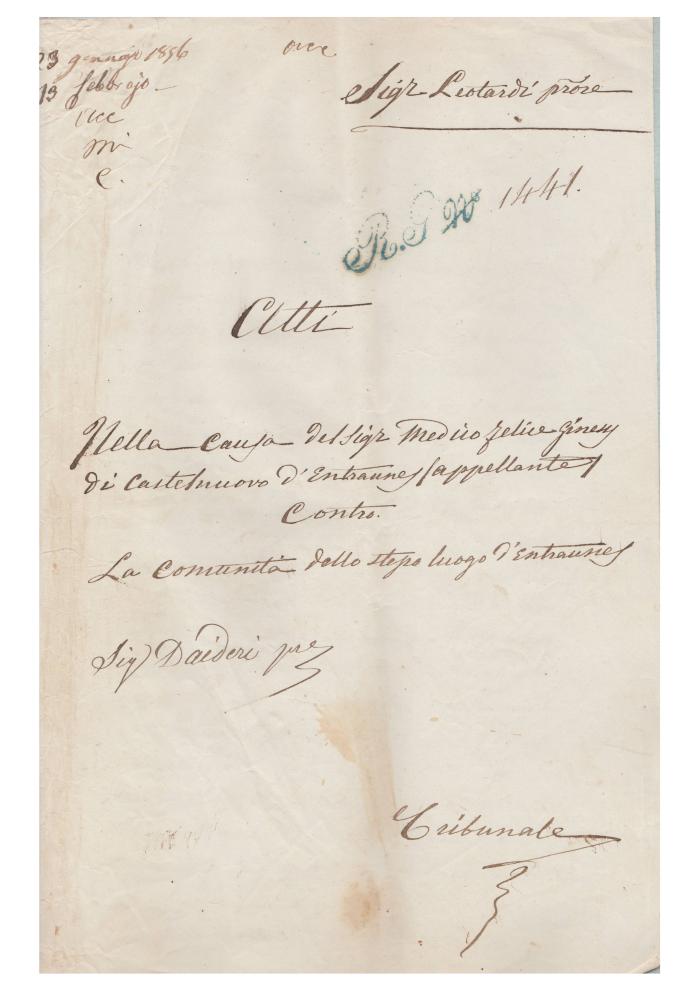 23 gennajo 1856
13 febbrajo
acc
Sigr Leotardi prõre
R. G. N 1441.
Atti
Nella causa del Sigr Medico felice Ginesy
di Castelnuovo d'Entraunes (appellante)
Contro.
La Comunità dello stesso luogo d'Entraunes
Sigr Daideri pre
Tribunale